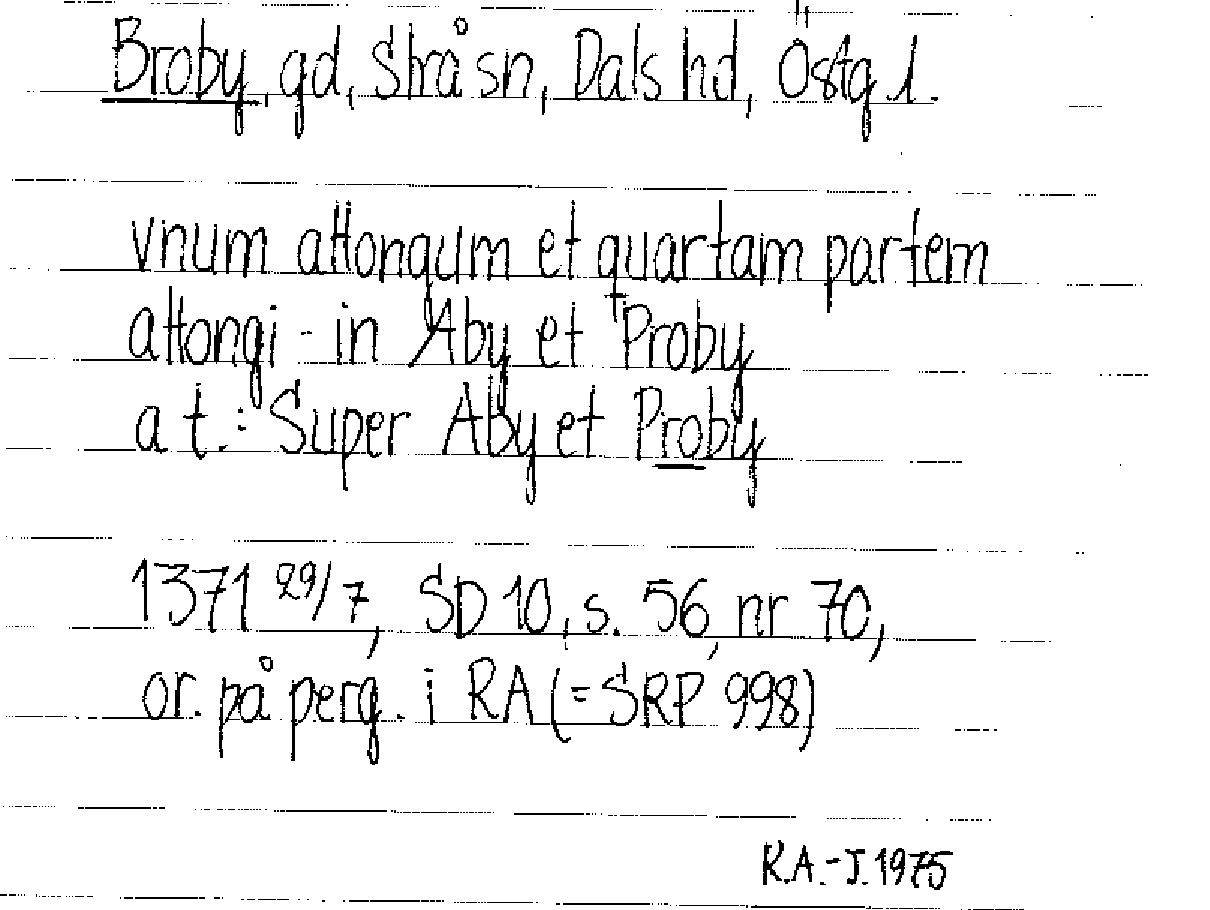 Broby, gd, Strå sn, Dals hd, Östg l.
vnum attongum et quartam partem
attongi - in Aby et Proby
a t.: Super Aby et Proby
1371 29/7, SD 10, s. 56, nr 70,
or. på perg. i RA (= SRP 998)
K.A.-J. 1975